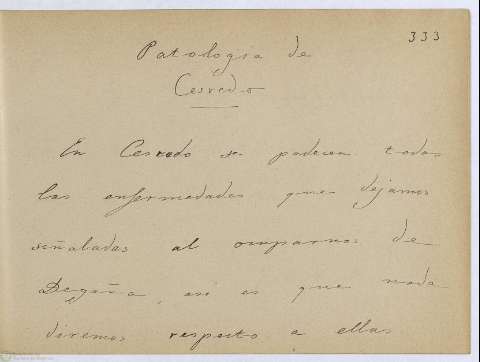 333
Patologia de
Cesredo
En Cesredo se padecen todas
las enfermedades que dejamos
señaladas al ocuparnos de
Degaña, asi es que nada
diremos respecto a ellas